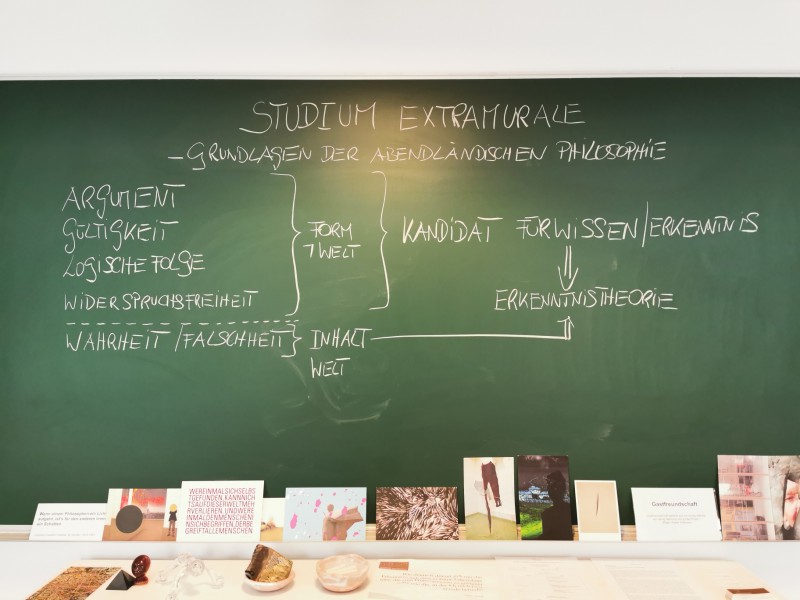 STUDIUM EXTRAMURALE
- GRUNDLAGEN DER ABENDLÄNDISCHEN PHILOSOPHIE
ARGUMENT
GÜLTIGKEIT
LOGISCHE FOLGE
WIDERSPRUCHSFREIHEIT
FORM
WELT
KANDIDAT FÜR WISSEN/ERKENNTNIS
ERKENNTNISTHEORIE
WAHRHEIT/FALSCHHEIT
INHALT
WELT
WEREINMALSICHSELB
STGEFUNDEN,KANNNICH
TSAUFDIESERWELTMEH
RVERLIEREN.UNDWERE
INMALDENMENSCHENI
NSICHBEGRIFFEN,DERBE
GREIFTALLEMENSCHEN.
Gastfreundschaft